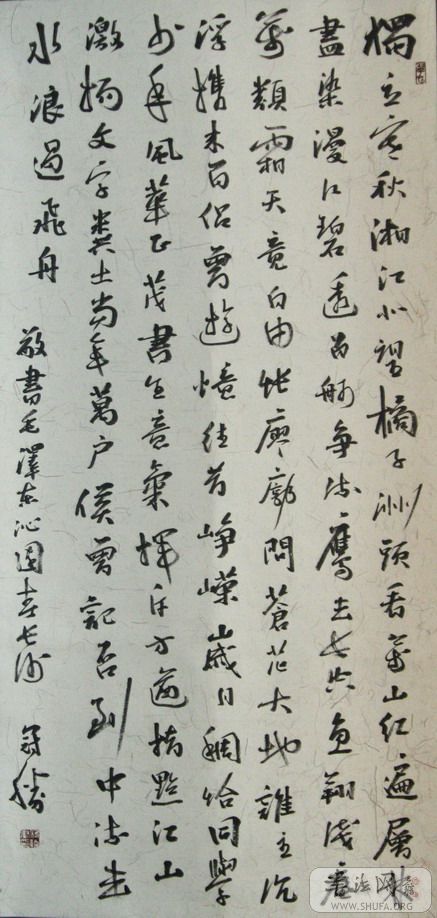 獨立寒秋湘江北望橘子洲頭看萬山紅遍層林
盡染漫江碧透百舸争流鷹击长空魚翔淺底
萬類霜天竟自由悵廖廓問蒼茫大地誰主沉
浮攜来百侣曾遊憶往昔崢嶸歲月稠恰同學
少年風華正茂書生意氣揮斥方遒指點江山
激揚文字糞土當年萬户侯曾記否到中流击
水浪遏飛舟
敬書毛澤东沁園春长沙
书法网
WWW.SHUFA.ORG